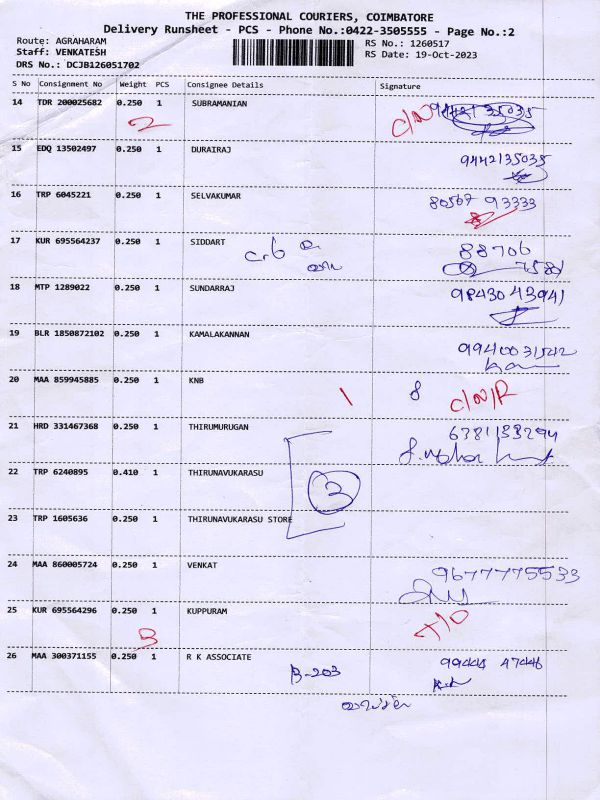 THE PROFESSIONAL COURIERS, COIMBATORE
Delivery Runsheet - PCS - Phone No.:0422-3505555 - Page No.:2
Route: AGRAHARAM
RS No.: 1260517
Staff: VENKATESH
RS Date: 19-Oct-2023
DRS No.: DCJB126051702
S No Consignment No Weight PCS Consignee Details Signature
14 TDR 200025682 0.250 1 SUBRAMANIAN C/N 9442135035
2
15 EDQ 13502497 0.250 1 DURAIRAJ 9442135035
16 TRP 6045221 0.250 1 SELVAKUMAR 80567 93333
17 KUR 695564237 0.250 1 SIDDART 88706
7581
18 MTP 1289022 0.250 1 SUNDARRAJ 9843043941
19 BLR 1850872102 0.250 1 KAMALAKANNAN 9940031542
20 MAA 859945885 0.250 1 KNB 1 8 C/N/R
21 HRD 331467368 0.250 1 THIRUMURUGAN 6381133294
22 TRP 6240895 0.410 1 THIRUNAVUKARASU 3
23 TRP 1605636 0.250 1 THIRUNAVUKARASU STORE
24 MAA 860005724 0.250 1 VENKAT 9677775533
25 KUR 695564296 0.250 1 KUPPURAM
3
26 MAA 300371155 0.250 1 R K ASSOCIATE B-203 99444 47446